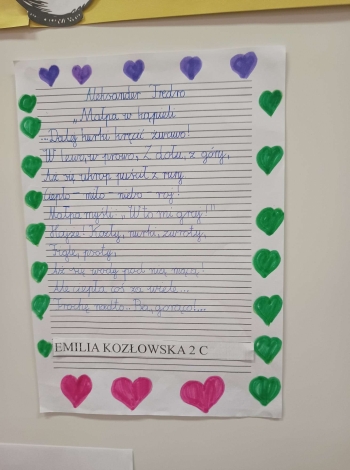 Aleksander Fredro
"Małpa w kąpieli
...Dalej kurki kręcić żwawo!
W lewo, w prawo, Z dołu, z góry,
Aż się ukrop puścił z rury.
Ciepło - miło - niebo - raj!
Małpa myśli: "W to mi graj!"
Hajże! Kozły, nurki, zwroty,
Figle, psoty,
Aż się wody pod nią mącą!
Ale ciepła coś za wiele...
Trochę nadto... Ba, gorąco!...
EMILIA KOZŁOWSKA 2 C